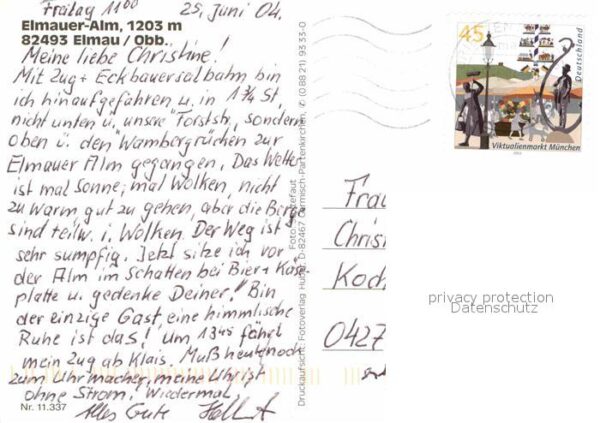 Freitag 11⁰⁰ 25. Juni 04.
Elmauer-Alm, 1203 m
82493 Elmau / Obb.
Meine liebe Christine!
Mit Zug + Eckbauerseilbahn bin
ich hinaufgefahren u. in 1¾ St.
nicht unten ü. "unsre" Forststr, sondern
oben ü. den "Wambergrücken zur
Elmauer Alm gegangen. Das Wetter
ist mal Sonne, mal Wolken, nicht
zu warm, gut zu gehen, aber die Berge
sind teilw. i. Wolken. Der Weg ist
sehr sumpfig. Jetzt sitze ich vor
der Alm im Schatten bei Bier + Käse-
platte u. gedenke Deiner! Bin
der einzige Gast, eine himmlische
Ruhe ist das! um 13⁴⁵ fährt
mein Zug ab Klais. Muß heute noch
zum Uhrmacher, meine Uhr ist
ohne Strom! Wiedermal,
Alles Gute
Nr. 11.337
Druckaufsicht: Fotoverlag Huber, D-82467 Garmisch-Partenkirchen, ✆ (0 88 21) 93 33-0
45
Deutschland
Viktualienmarkt München
Frau
Christ
Koch
0427
privacy protection
Datenschutz